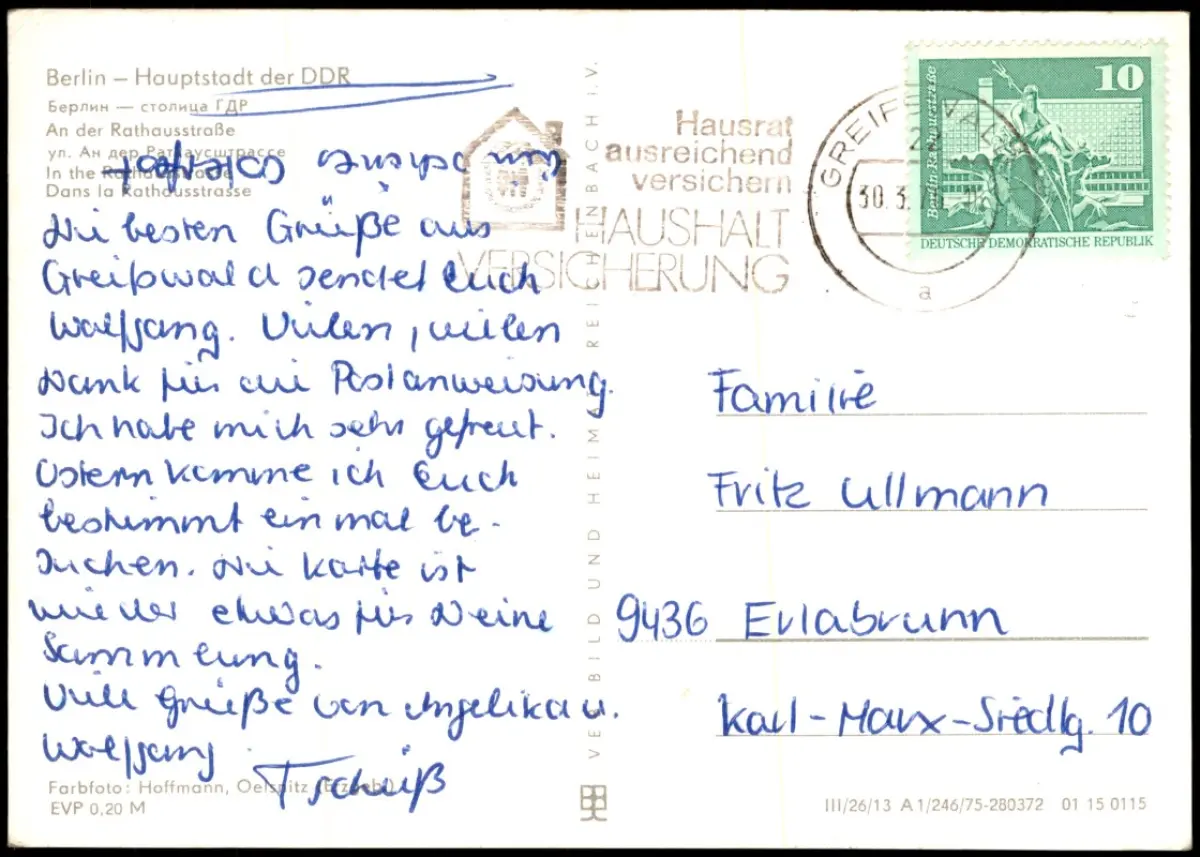 Berlin – Hauptstadt der DDR
Берлин — столица ГДР
An der Rathausstraße
ул. Ан дер Ратхаусштрассе
In the Rathausstraße
Dans la Rathausstrasse
schönes Osterfest
Die besten Grüße aus
Greifswald sendet Euch
Wolfgang. Vielen, vielen
Dank für die Postanweisung.
Ich habe mich sehr gefreut.
Ostern komme ich Euch
bestimmt einmal be-
suchen. Die Karte ist
wieder etwas für Deine
Sammlung.
Viele Grüße von Angelika u.
Wolfgang
Tschüß
Farbfoto: Hoffmann, Oelsnitz (Erzgeb.)
EVP 0,20 M
VEB BILD UND HEIMAT REICHENBACH I.V.
Hausrat
ausreichend
versichern
HAUSHALT
VERSICHERUNG
GREIFSWALD
30.3.
a
10
Berlin-Rathausstraße
DEUTSCHE DEMOKRATISCHE REPUBLIK
Familie
Fritz Ullmann
9436 Erlabrunn
Karl-Marx-Siedlg. 10
III/26/13 A 1/246/75-280372 01 15 0115